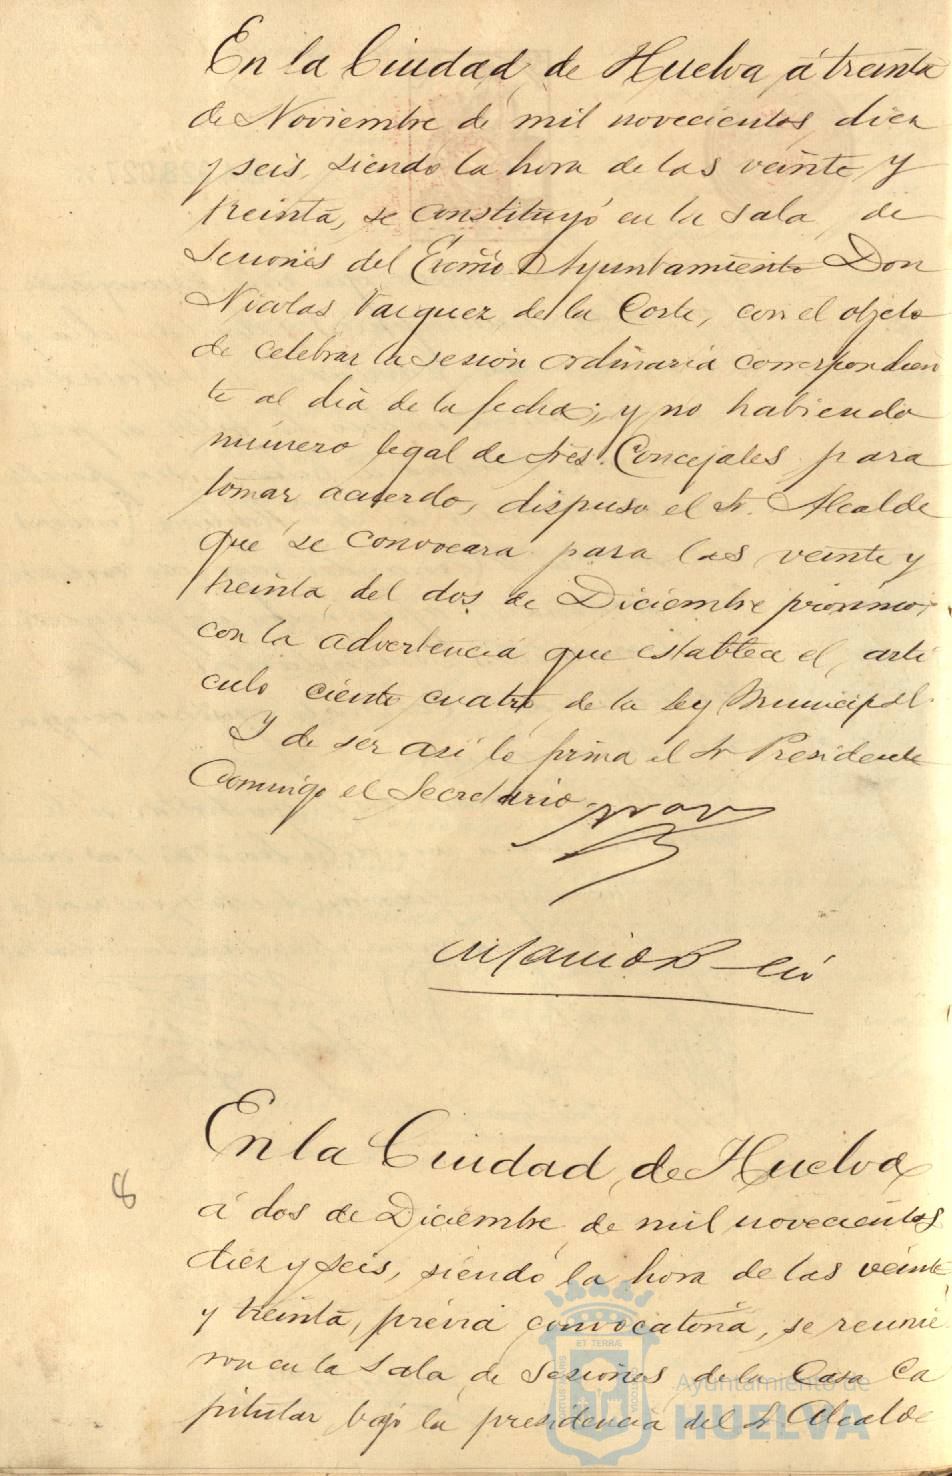 En la Ciudad de Huelva á treinta
de Noviembre de mil novecientos diez
y seis, siendo la hora de las veinte y
treinta, se constituyó en la Sala de
Sesiones del Excmo Ayuntamiento Don
Nicolas Vazquez de la Corte, con el objeto
de celebrar la sesión ordinaria correspondien
te al dia de la fecha; y no habiendo
número legal de Sres. Concejales para
tomar acuerdo, dispuso el Sr. Alcalde
que se convocara para las veinte y
treinta del dos de Diciembre próximo,
con la advertencia que establece el arti
culo ciento cuatro de la ley Municipal.
Y de ser asi lo firma el Sr Presidente
conmigo el Secretario.
En la Ciudad de Huelva
8
á dos de Diciembre de mil novecientos
diez y seis, siendo la hora de las veinte
y treinta, prévia convocatoria, se reunie
ron en la Sala de Sesiones de la Casa Ca
pitular bajo la presidencia del Sr. Alcalde
ET TERRÆ
Ayuntamiento de
HUELVA